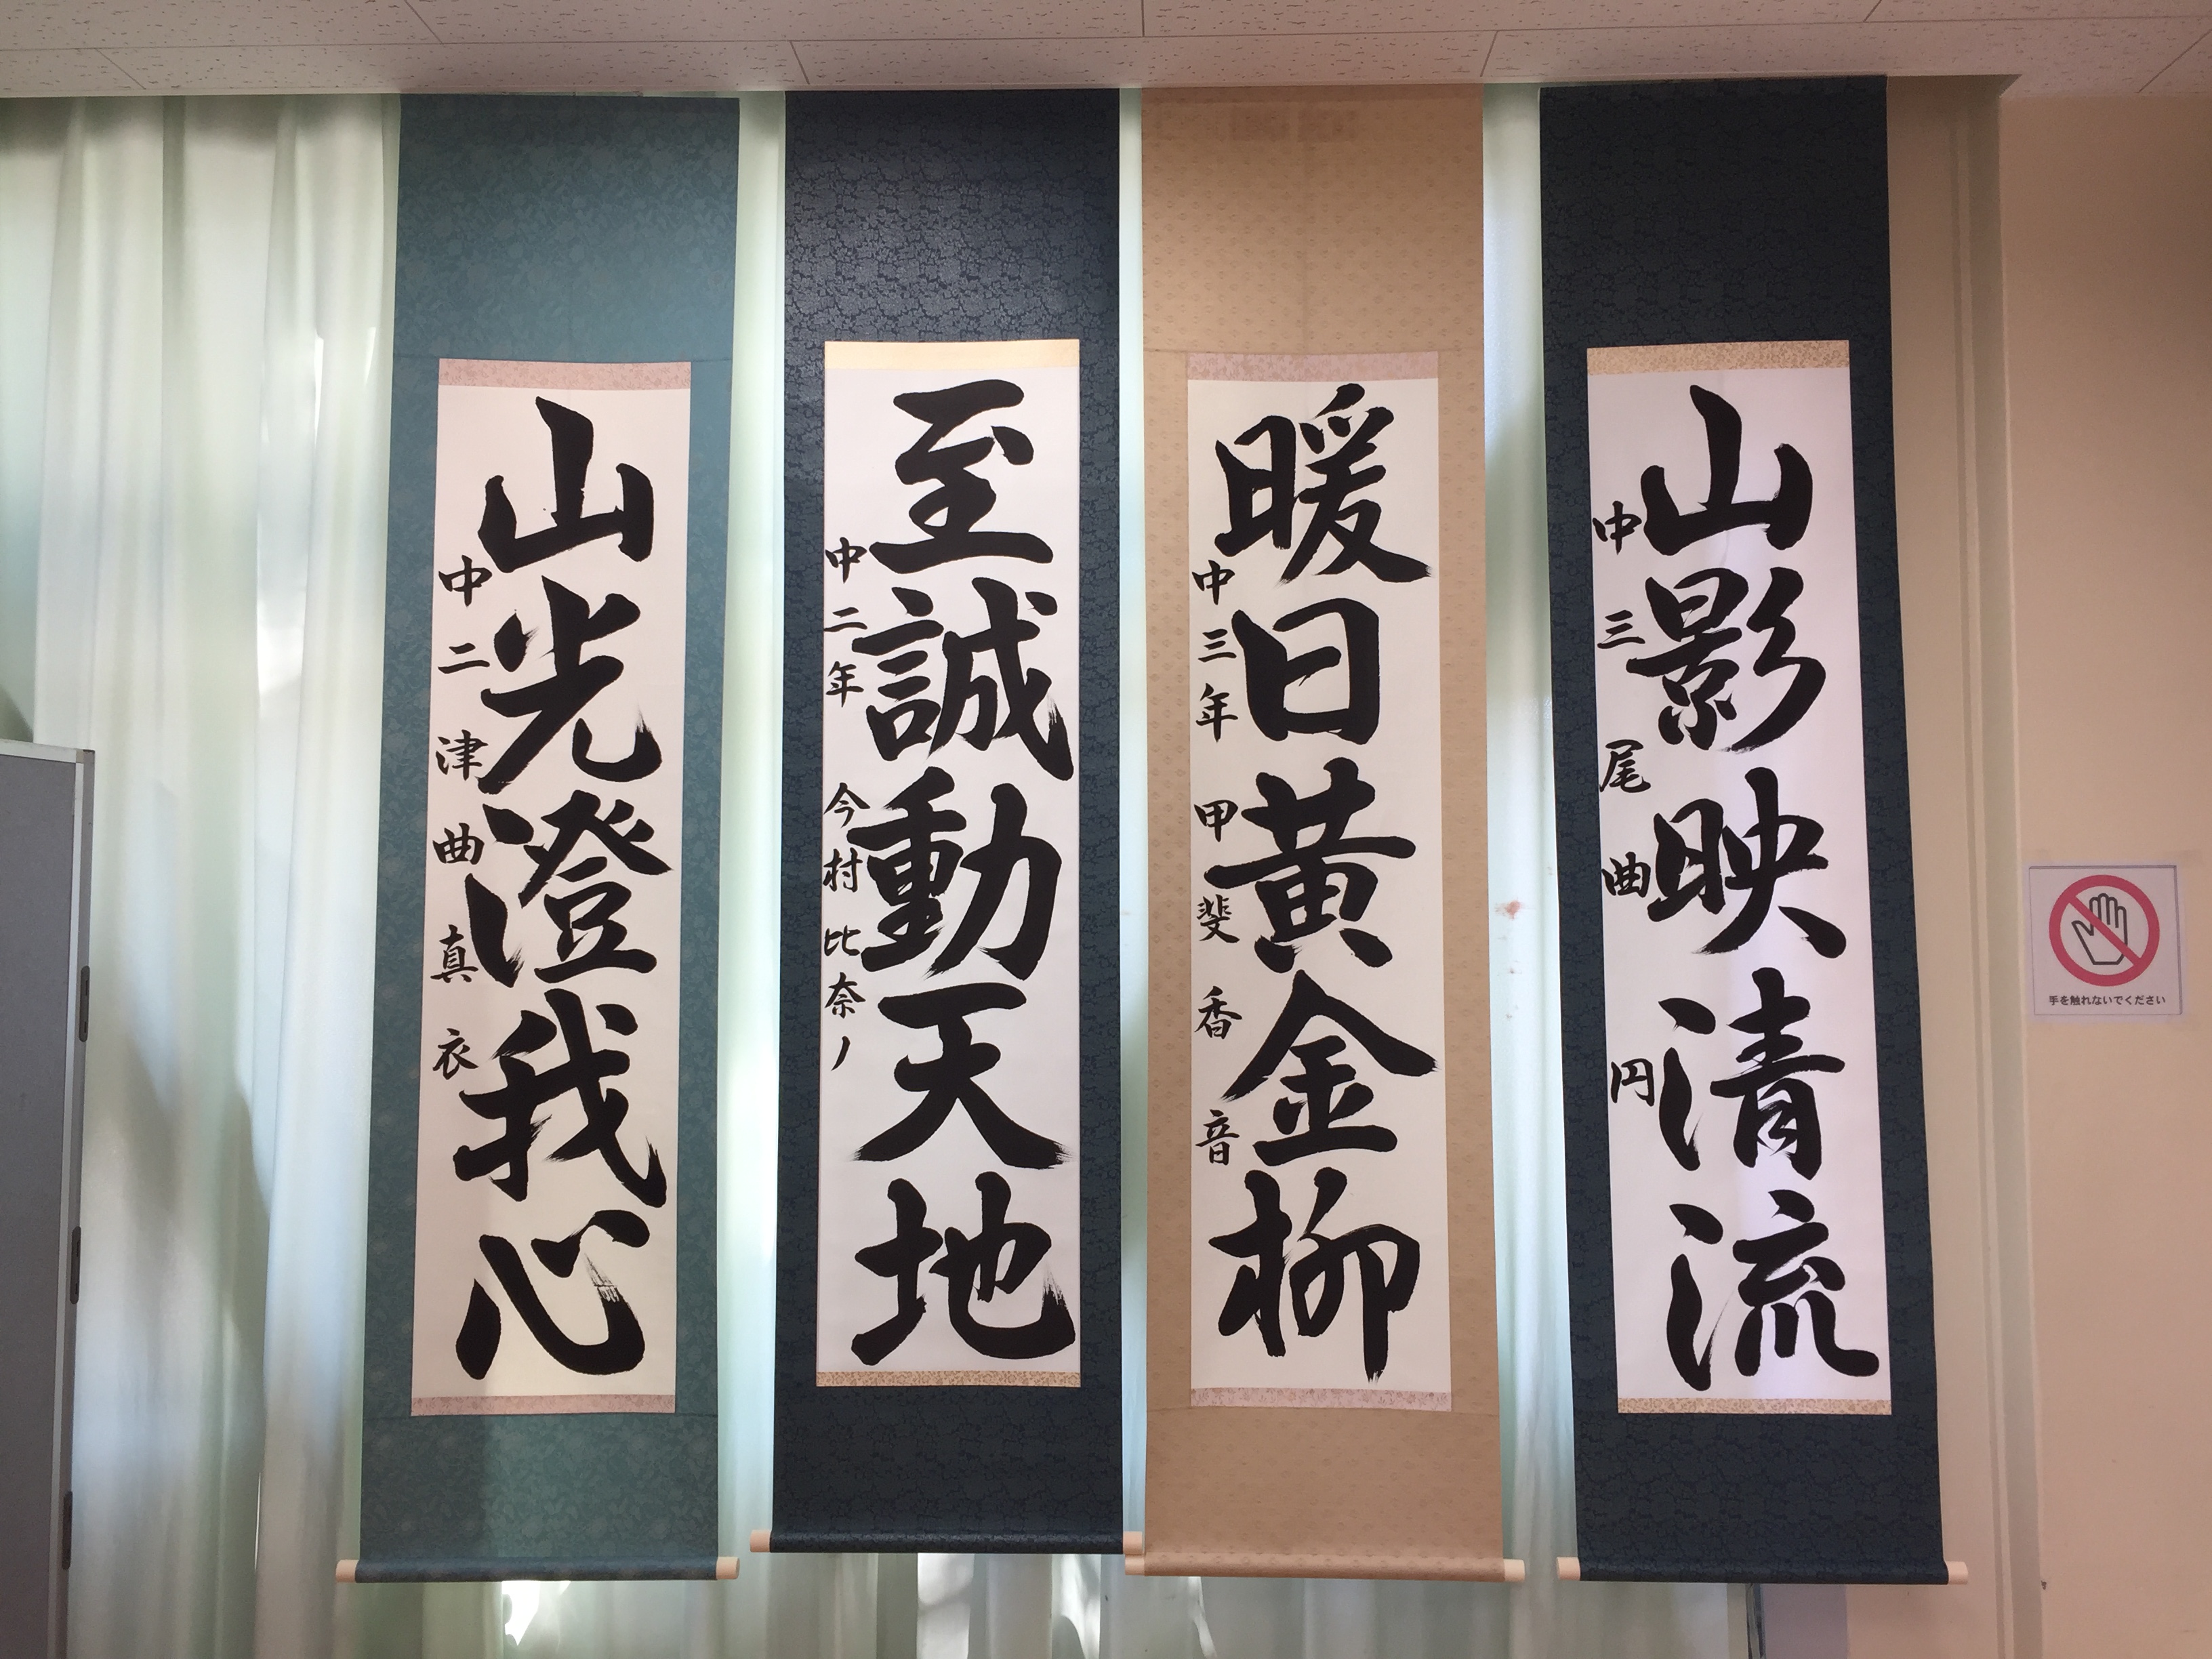 山光澄我心
中二 津曲真衣
至誠動天地
中二年 今村比奈ノ
暖日黄金柳
中三年 甲斐香音
山影映清流
中三 尾曲円
手を触れないでください